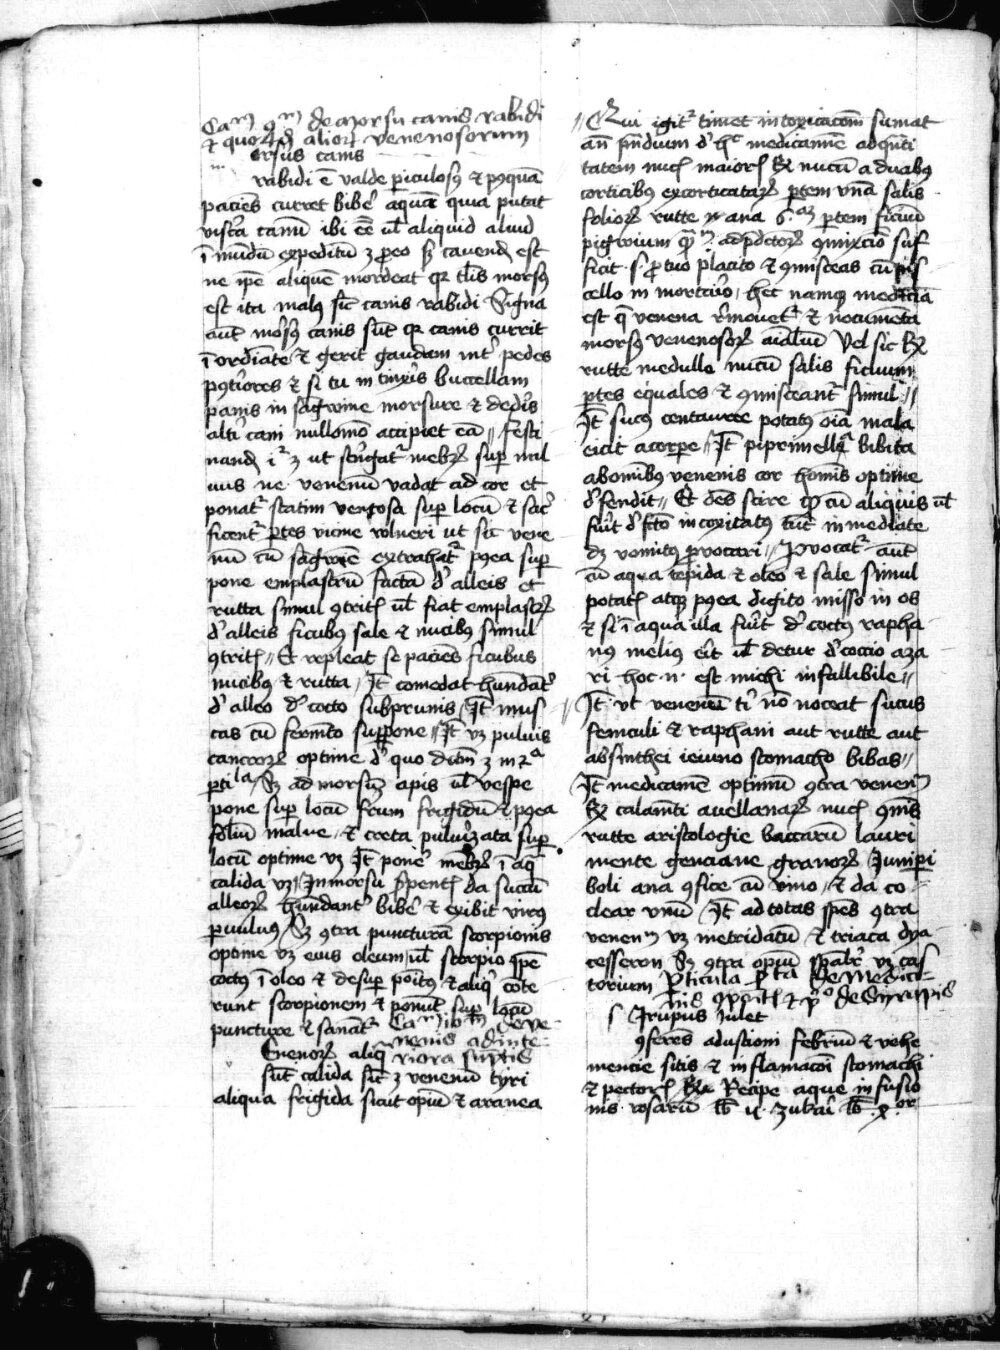 Cam 9m de morsu canis rabidi
et quorūdā alior̄ venenosorum
orsus canis
rabidi ē valde piculosꝰ et pꝰquā
paciēs curret bibe aquā quia putat
viscā canū ibi eē ul' aliquid aliud
ī mūdū expeditū ꝫ ꝓeo sꝫ cauendū est
ne ipē aliquē mordeat qr tlis morsꝰ
est ita malꝰ sic canis rabidi Signa
aut morsꝰ canis sūt qr canis currit
īordiate et gerit gaudam int' pedes
pꝰtiores et si tu intīxis buccellam
panis in sāgwine morsure et dedis
alti cani nullomō accipiet eā // Festi
nandū ꝫ ut strīgat' mēbrꝫ sup uul
nus ne venenū vadat ad cor et
ponat' statim ventosa sup locū et sac'
ficent' ptes vicine vulneri ut sic vene
nū cū sāgwīe extrahat' pꝰea sup
pone emplastrū factū d' alleis et
rutta simul ꝯtritꝭ ul' fiat emplastrꝫ
d' alleis ficubꝰ sale et nucibꝰ simul
ꝯtritꝭ // Et repleat se paciēs ficubus
nucibꝰ et rutta / Jt comedat hūdant'
d' alleo d' cocto subprunis / Jt mus
cas cū fermto suppone // Jt vꝫ puluis
cancrorꝫ optime d' quo dictū ꝫ in 2a
pti la / Sꝫ ad morsū apis ul' vespe
pone sup locū frum frigidū et pꝰea
foliū malue et creta puluizata sup
locū optime vꝫ Jt pone mēbrꝫ ī aq
calida vꝫ / Jn morsu spentꝭ da succū
alleorꝫ hūdant' bibe et exibit virꝰ
puulnꝰ / Sꝫ ꝯtra puncturā scorpionis
optime vꝫ eius oleum ul' scorpio ipē
coctꝰ ī oleo et desup poitꝰ et aliq cōte
runt scorpionem et ponūt sup locū
puncture et sanat' Cam 10m de ve
nenis ad inte
Enenorꝫ aliq riora sūptis
sūt calida sic ꝫ venenū tyri
aliqua frigida sicut opiū et aranea
// Qui igit' timet intoxicacōem sumat
añ pñdium d' hc medicamīe ad qūti
tatem nucꝭ maiorꝭ Rx nucū a duabꝰ
corticibꝰ excorticatarꝫ ptem vnā salis
foliorꝫ rutte añ ana 6.am ptem ficuū
pigwium qm ad pdctorꝫ ꝯmixcio suf
ficit s ꝓ tuo placito et ꝯmisceas cū pis
cello in mortario / hec namqꝫ medicia
est q venena rmouet' et nocumēta
morsꝰ venenosorꝫ aialium Vel sic Rx
rutte medulle nucū salis ficuum
ptes equales et ꝯmisceant' simul //
Jt sucꝰ centauree potatꝰ oīa mala
eicit a corpe // Jt piprimella bibita
ab omībꝰ venenis cor homīs optime
d'fendit // Et debes scire ꝙ cū aliquis ul'
fuit d' fcto in toxicatꝰ tūc in mediate
dꝫ vomitꝰ pvocari // Pvocat' aut
cū aqua tepida et oleo et sale simul
potatꝭ atqꝫ pꝰea digito misso in os
et si ī aqua illa fuit d' coctus rapha
nꝰ meliꝰ eit ul' detur d'coccio aza
ri hoc .n. est michi infallibile //
Jt vt venenū ti nō noceat sucus
feniculi et raphani aut rutte aut
absinthei ieiuno stomacho bibas //
Jt medicamē optimū ꝯtra venenū
Rx calamti auellanarꝫ nucꝭ ꝯmīs
rutte aristologie baccarū lauri
mente genciane granorꝫ Juniperi
boli ana ꝯfice cū vino / et da co
clear vnū Jt ad totas spēs ꝯtra
venenū vꝫ metridatū et triaca dya
tesseron Sꝫ ꝯtra opiū spalit' vꝫ cas
torium Pticula pta de medici
nis ꝯpoitꝭ et po de Sirupis
Jrupus Julet
ꝯferēs adustioni febriū et vehe
mencie sitis et inflamacōi stomachi
et pectorꝭ Rxa Recipe aque infusio
nis rosarū lb ij. zukari lb .x. or